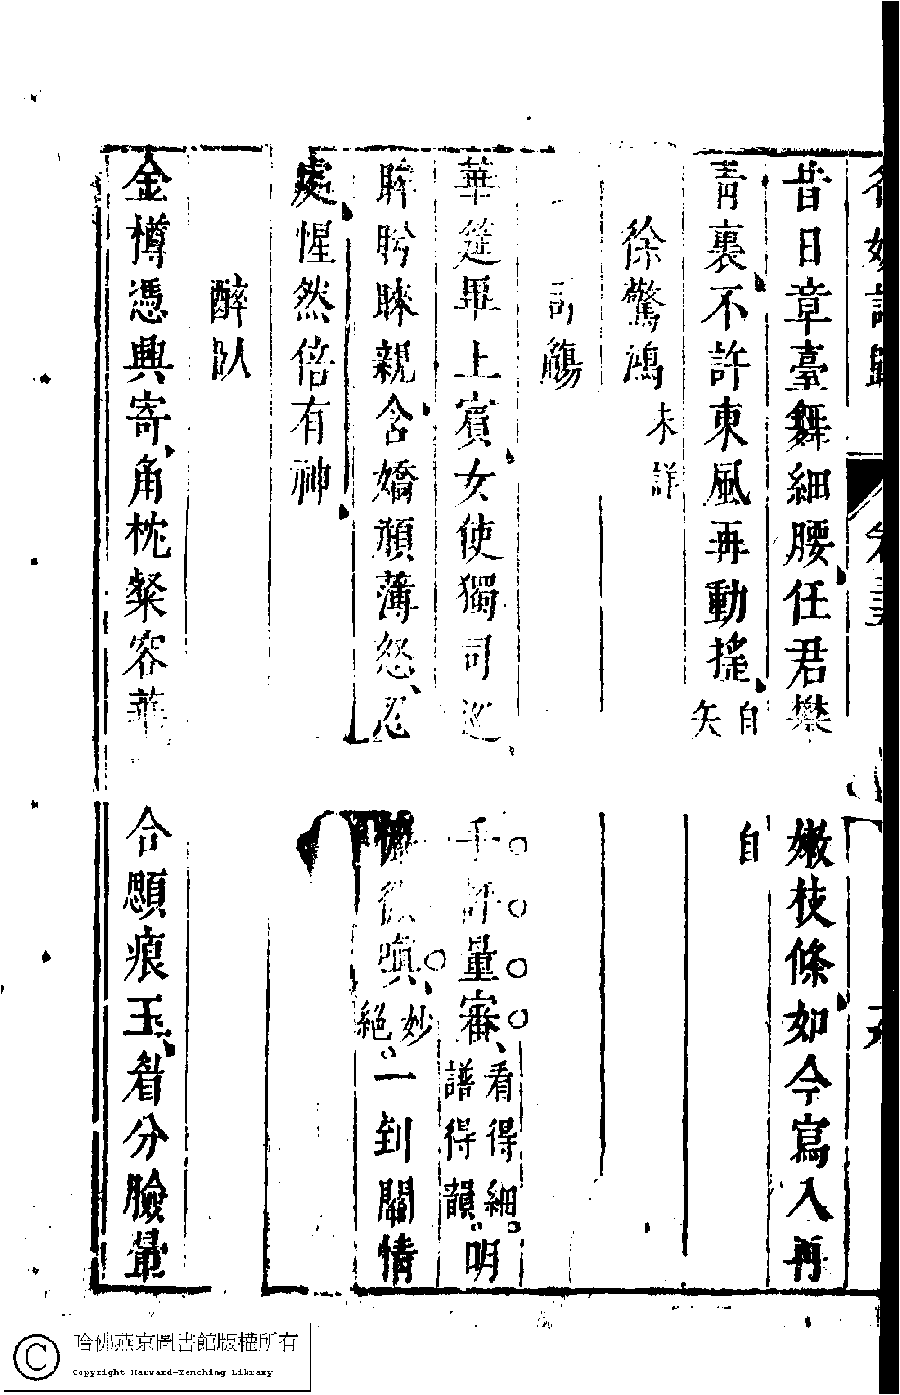 昔日章臺舞細腰任君攀嫩枝條如今寫入丹
青裏不許東風再動搖自矢自
徐驚鴻未詳
司觴
華筵畢上賓女使獨司巡千評量審看得細譜得韻明
眸盻睞親含嬌頩薄怒忍欲嗔妙絕一到關情
處惺然倍有神
醉臥
金樽憑興寄角枕粲容華合顋痕玉看分臉暈
哈佛燕京圖書館版權所有
Copyright Harvard-Yenching Library